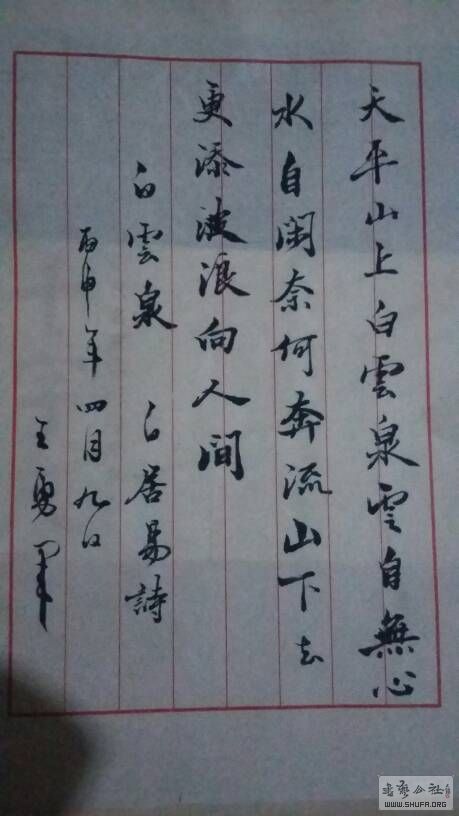 天平山上白雲泉雲自無心
水自閑奈何奔流山下去
更添波浪向人间
白雲泉 白居易詩
丙申年四月九日
王勇军
书艺公社
WWW.SHUFA.ORG